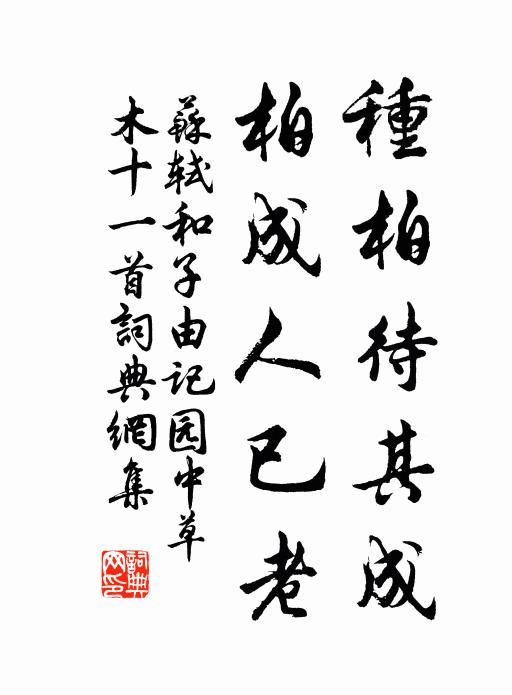 種柏待其成
柏成人已老
蘇軾和子由记园中草
木十一首詞典網集
詞典
网印